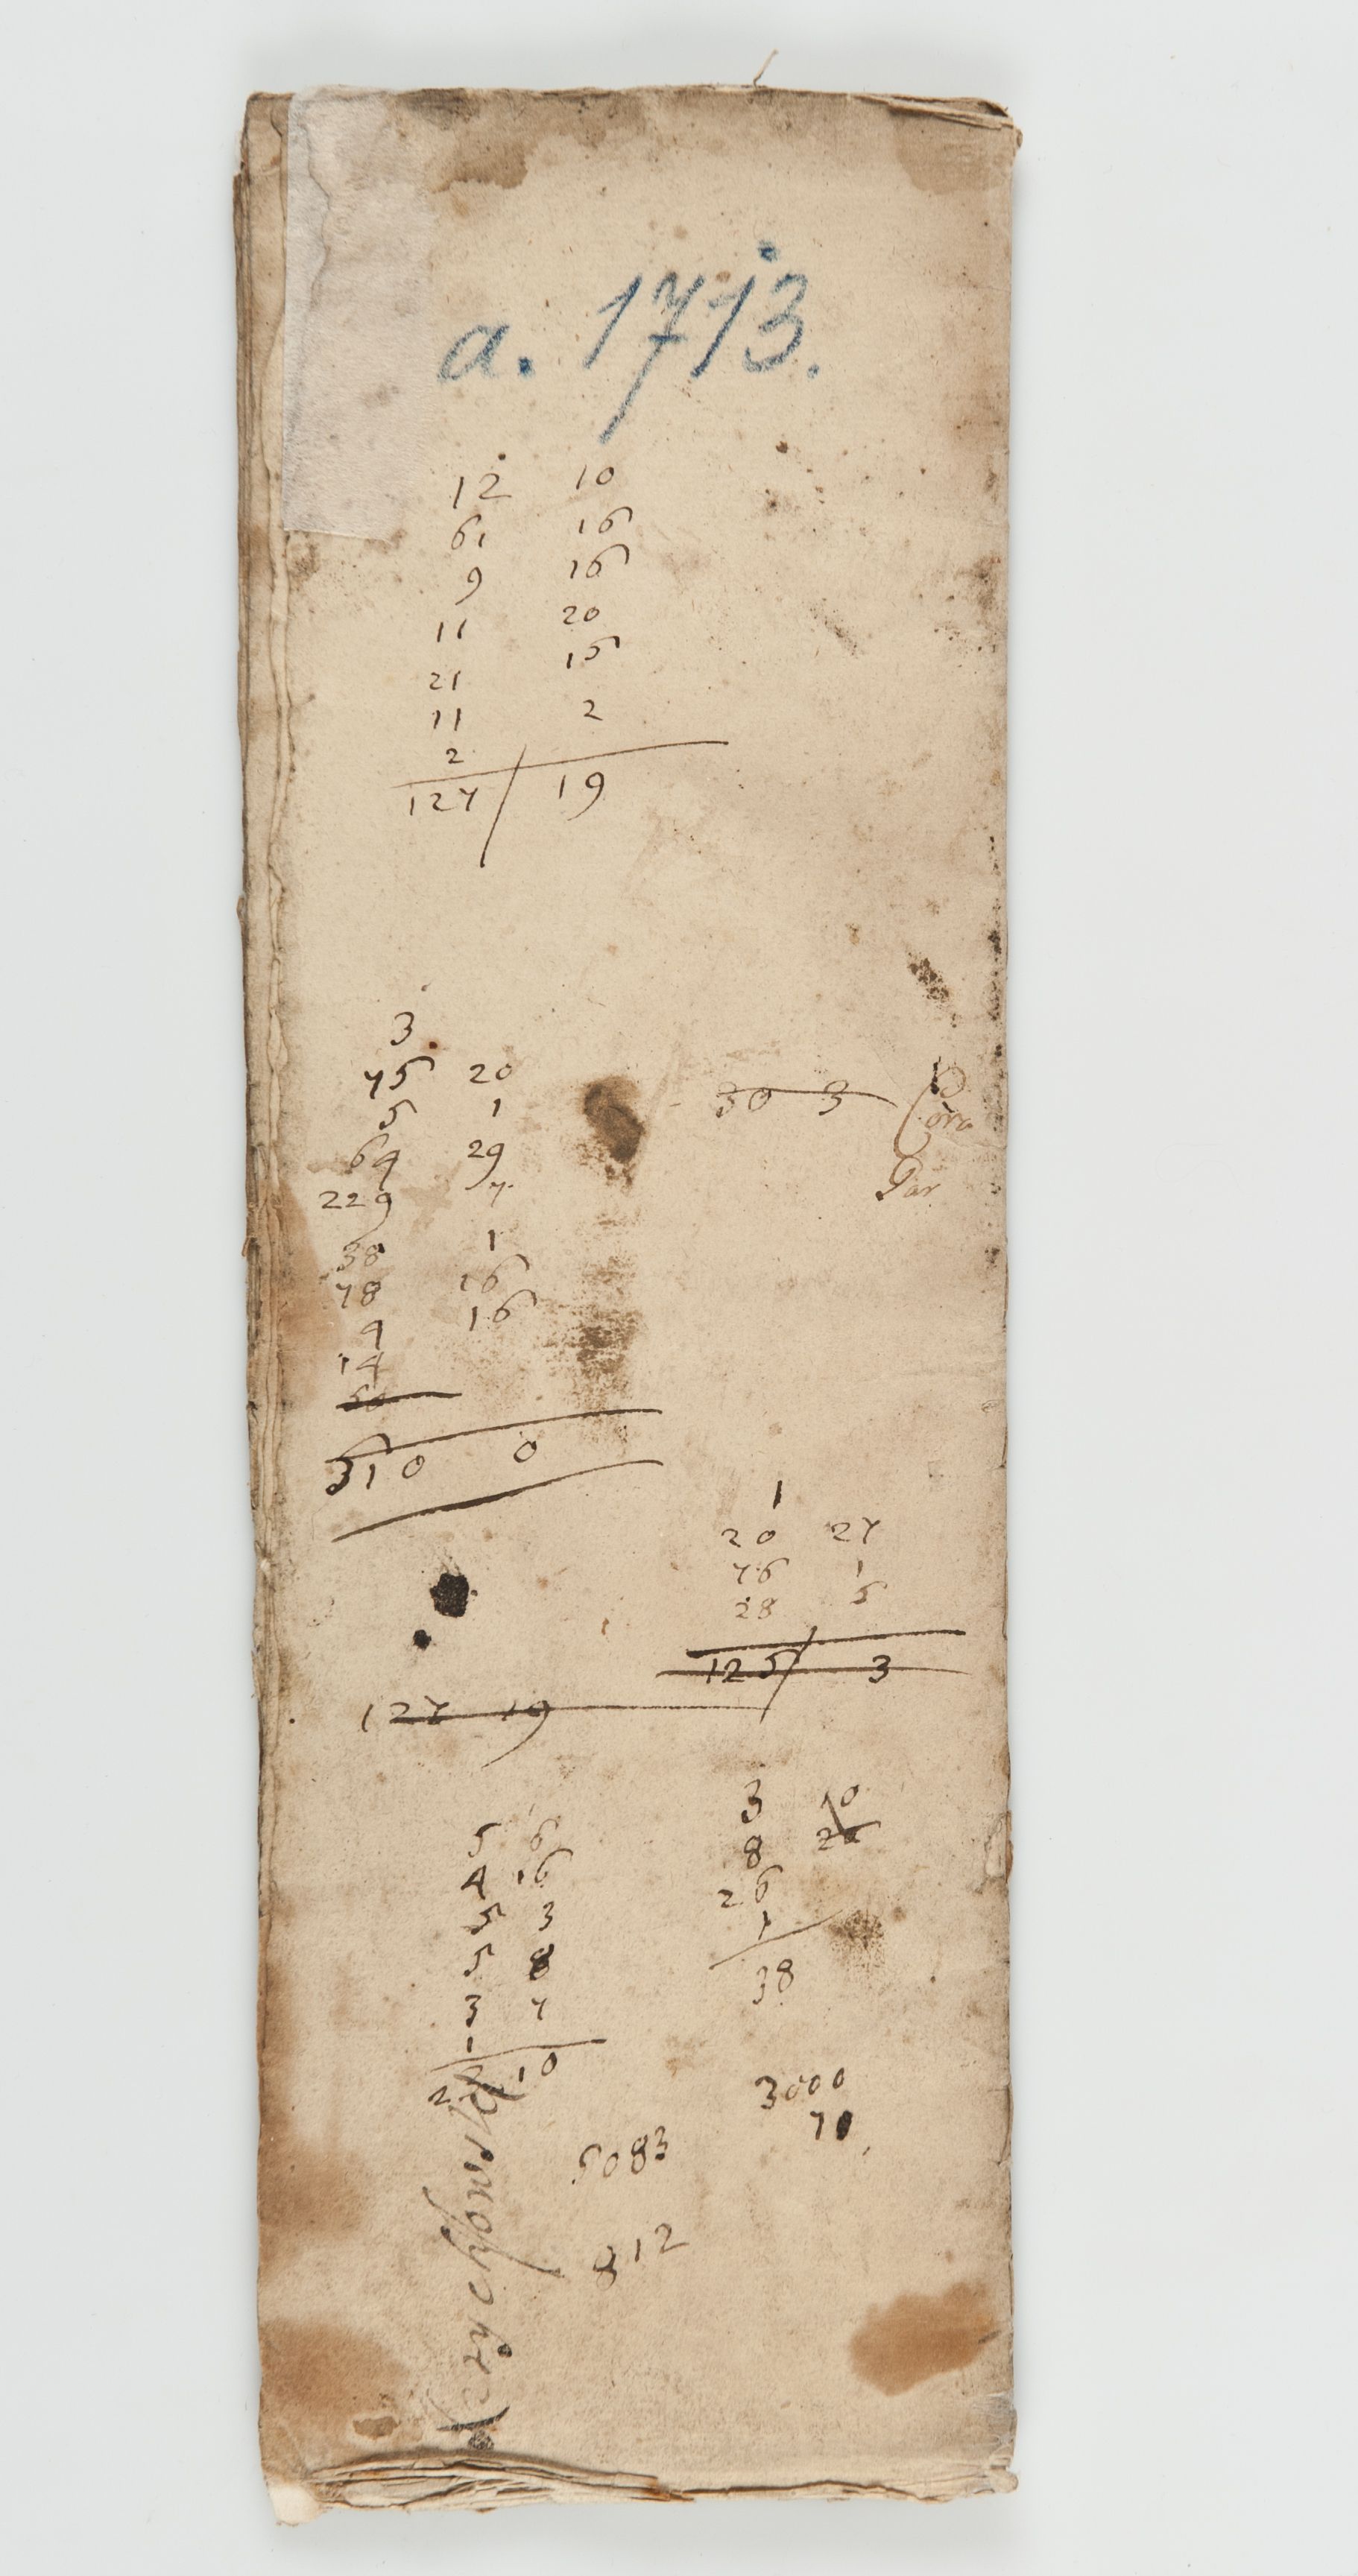 a. 1713.
12 10
61 16
9 16
11 20
21 15
11 2
2
127 19
3
75 20
5 1
64 29
229 7
38 1
78 16
9 16
14
50
310 0
30 3
Par
1
20 27
76 1
28 5
125 3
127 19
5 6
4 16
5 3
5 8
3 7
1
10
3 10
8
26
1
38
3000
71
5083
812